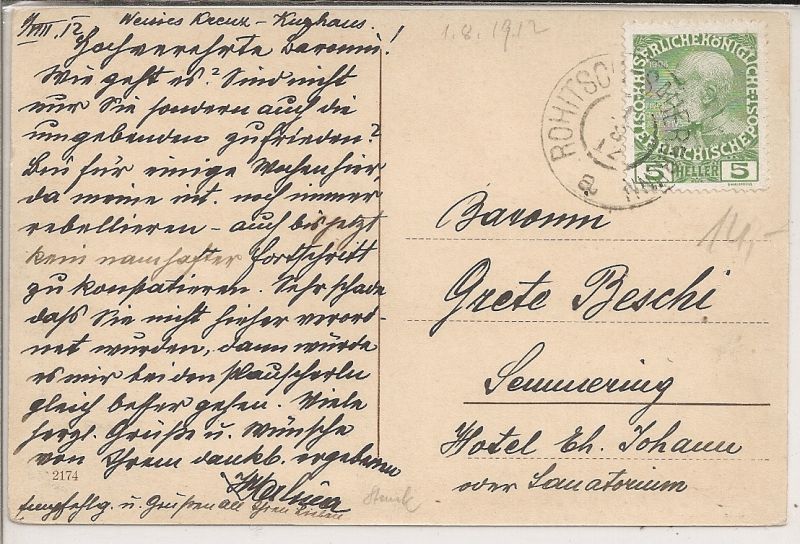 1/VIII. 12 Weisses Kreuz - Kurhaus.
Hochverehrte Baronin!
Wie geht es? Sind nicht
nur Sie sondern auch die
umgebenden zufrieden?
Bin für einige Wochen hier,
da meine int. noch immer
rebellieren - auch bis jetzt
kein namhafter Fortschritt
zu konstatieren. Sehr schade
daß Sie nicht hieher verord-
net wurden, dann würde
es mir bei den Plauscherln
gleich besser gehen. Viele
herzl. Grüße u. Wünsche
von Ihrem dankb. ergebenen
Empfehlg. u. Grüßen all Ihren Lieben
2174
1.8.1912
ROHITSCH
KAISERLICHE KÖNIGLICHE
ÖSTERREICHISCHE POST
5 HELLER 5
14,-
Baronin
Grete Beschi
Semmering
Hotel Eh. Johann
oder Sanatorium